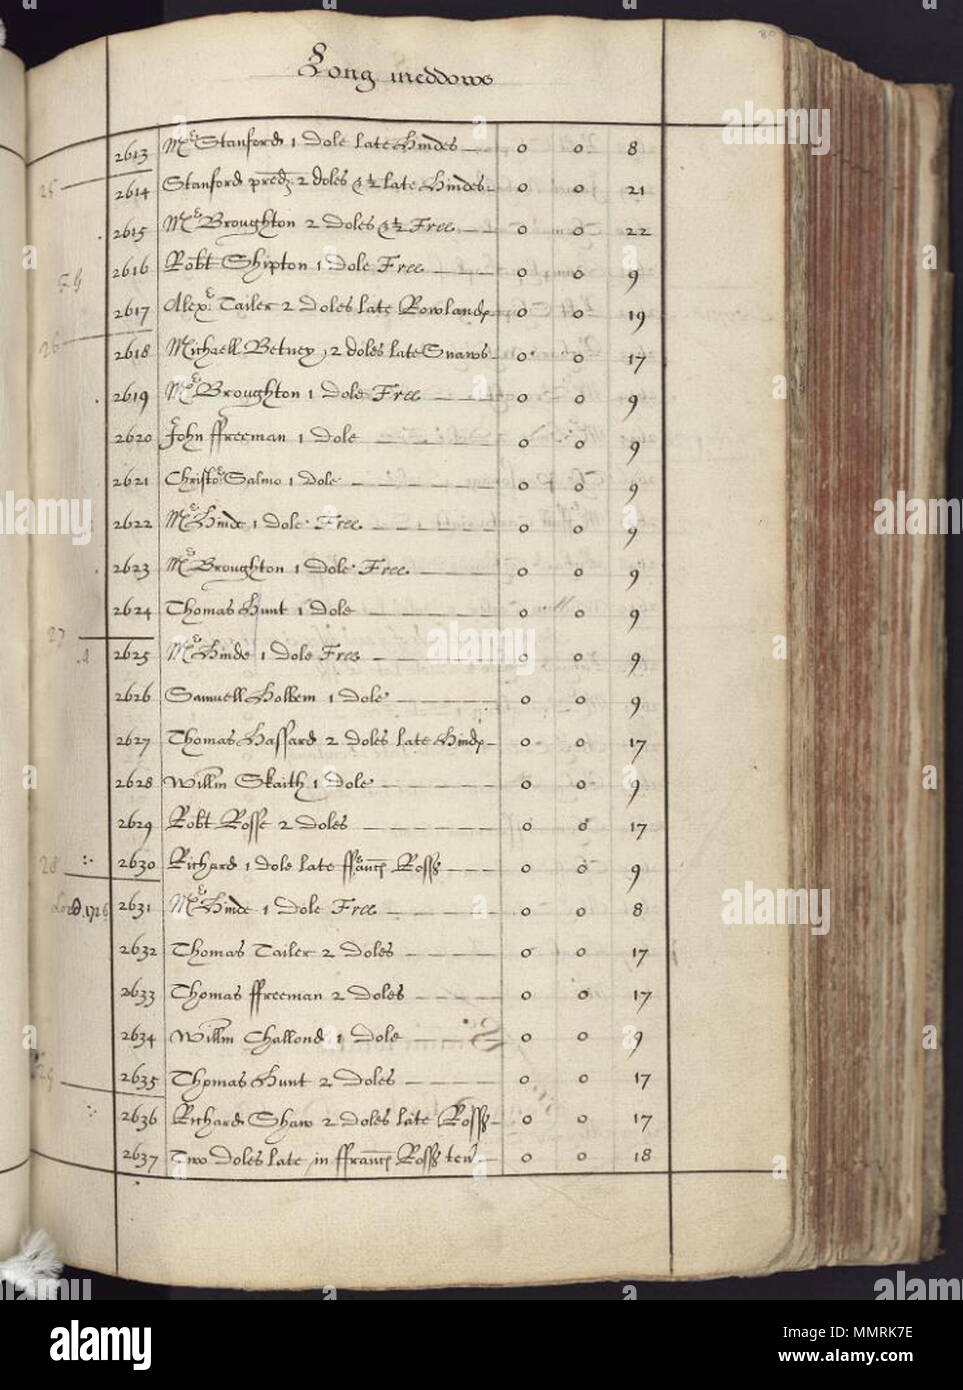 80
Long meddows
2613 Mr Stanford 1 dole late Hindes 0 0 8
25
2614 Stanford pred: 2 doles & ½ late Hindes 0 0 21
2615 Mr Broughton 2 doles & ½ Free 0 0 22
2616 Robt Shipton 1 dole Free 0 0 9
2617 Alexr Tailer 2 doles late Rowlands 0 0 19
26
2618 Michaell Betney 2 doles late Snaws 0 0 17
2619 Mr Broughton 1 dole Free 0 0 9
2620 John ffreeman 1 dole 0 0 9
2621 Christor Salmo 1 dole 0 0 9
2622 Mr Hinde 1 dole Free 0 0 9
2623 Mr Broughton 1 dole Free 0 0 9
2624 Thomas Hunt 1 dole 0 0 9
27
2625 Mr Hinde 1 dole Free 0 0 9
2626 Samuell Holbem 1 dole 0 0 9
2627 Thomas Hassard 2 doles late Hinds 0 0 17
2628 Willm Skaith 1 dole 0 0 9
2629 Robt Rosse 2 doles 0 0 17
28
2630 Richard 1 dole late ffranc Ross 0 0 9
1726 2631 Mr Hinde 1 dole Free 0 0 8
2632 Thomas Tailer 2 doles 0 0 17
2633 Thomas ffreeman 2 doles 0 0 17
2634 Willm Challond 1 dole 0 0 9
29
2635 Thomas Hunt 2 doles 0 0 17
2636 Richard Shaw 2 doles late Ross 0 0 17
2637 Two doles late in ffranc Ross ten 0 0 18
alamy
Image ID: MMRK7E
www.alamy.com